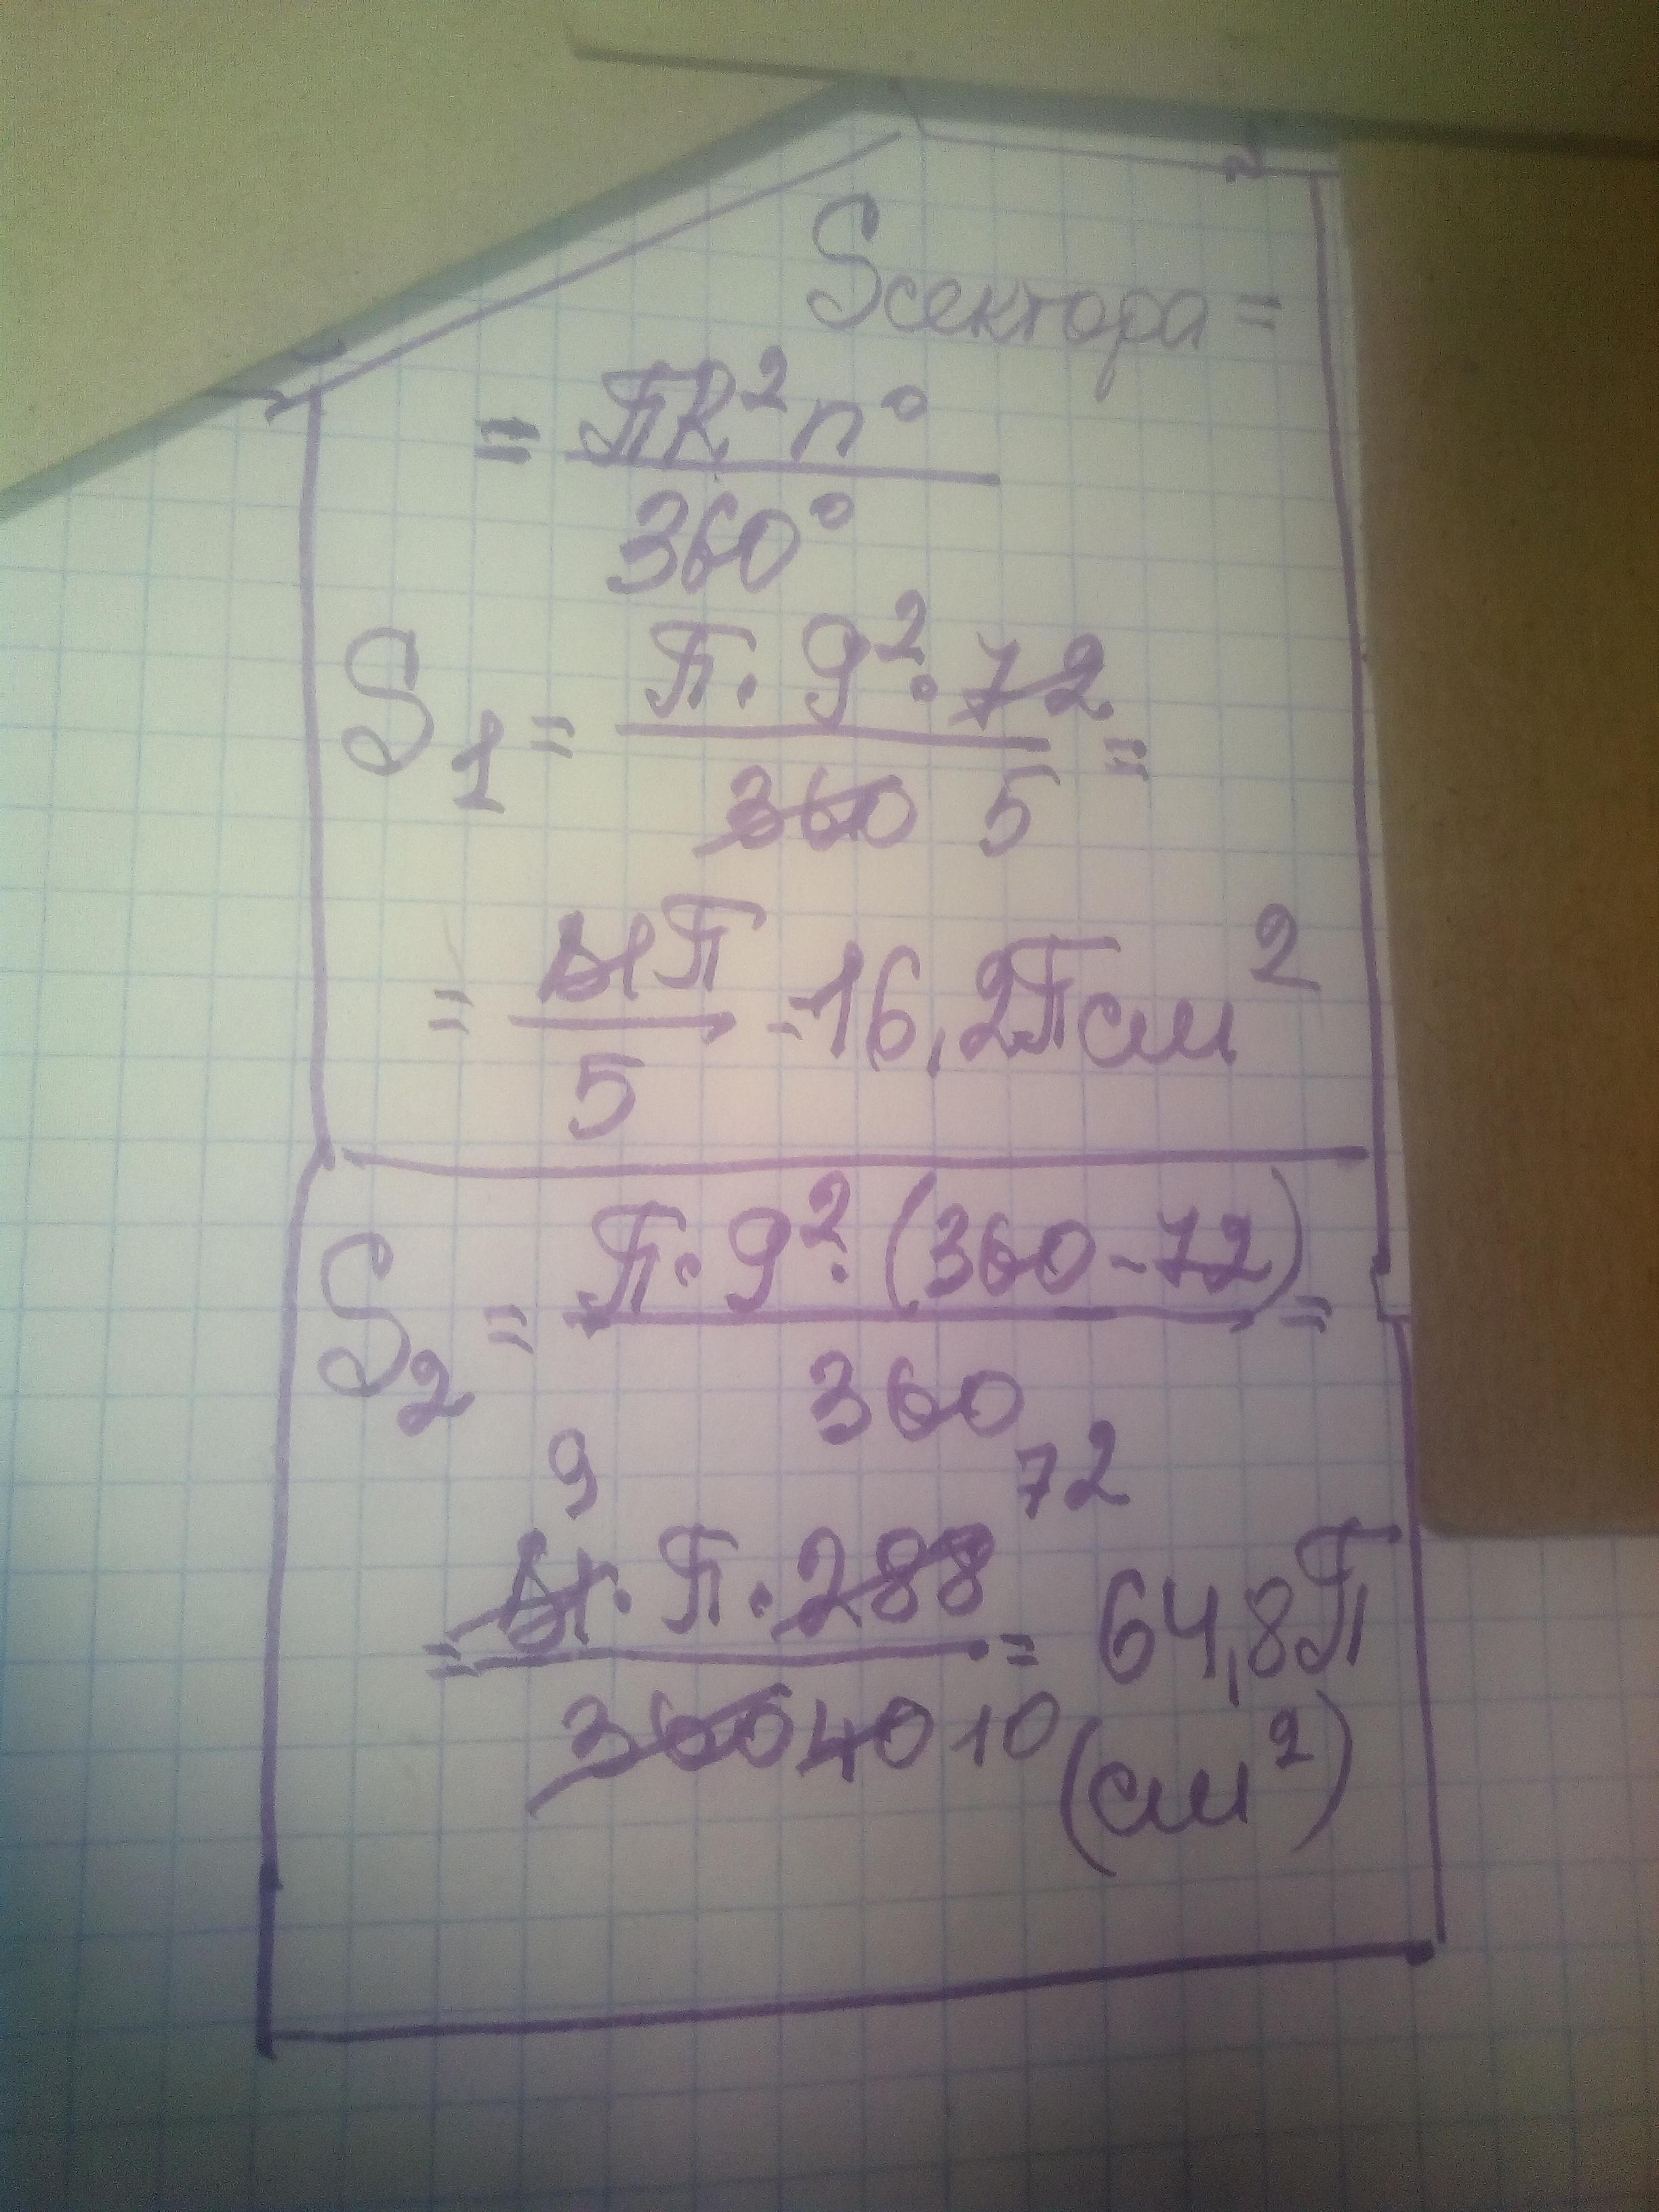 Sсектора =
= ПR²n°
360°
S₁ = П · 9² · 72 =
360 5
= 81П = 16,2П см²
5
S₂ = П · 9² · (360 - 72) =
360
9 72
= 81 · П · 288 = 64,8П
360 40 10 (см²)